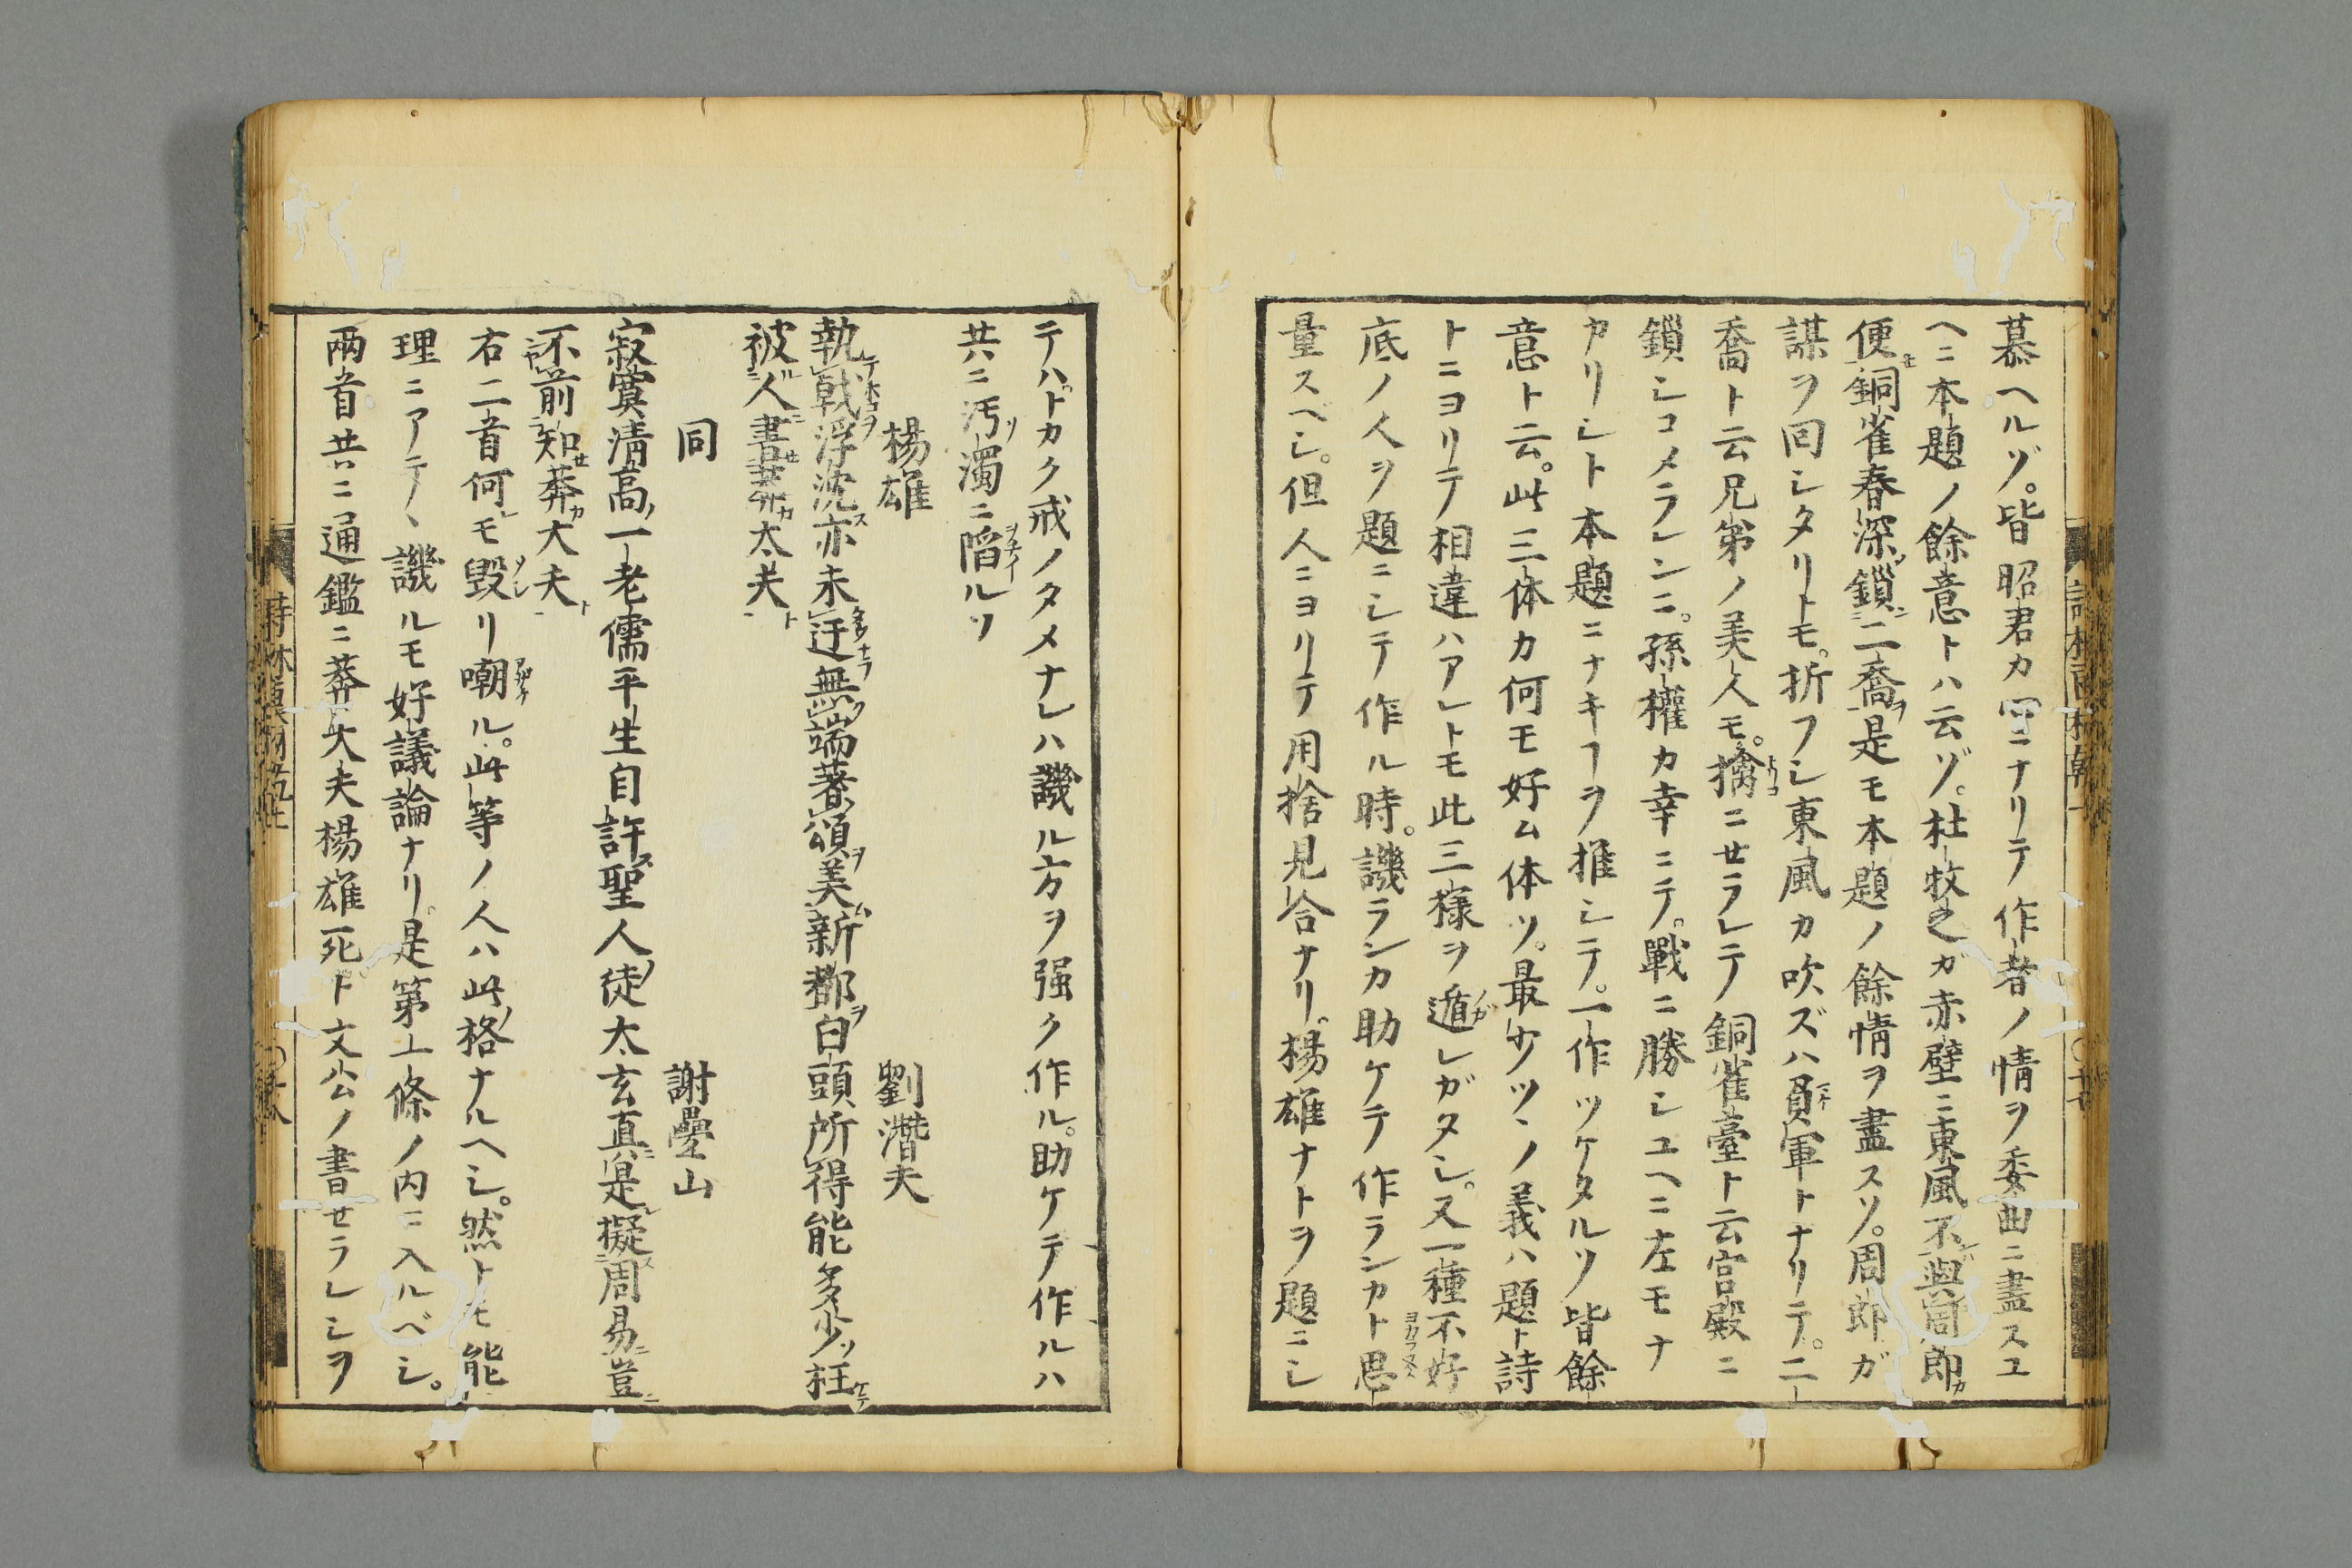 慕ヘルゾ。皆昭君カ𪜈ニナリテ作者ノ情ヲ委曲ニ盡スユ
ヘニ本題ノ餘意トハ云ゾ。杜牧之ガ赤壁ニ東風不與周郎カ
便銅雀春深鎖二喬ヲ是モ本題ノ餘情ヲ盡スソ。周郎ガ
謀ヲ回シタリトモ。折フシ東風カ吹ズハ負軍トナリテ。二
喬ト云兄弟ノ美人モ。擒ニせラレテ銅雀臺ト云宮殿ニ
鎖シコメラレンニ。孫權カ幸ニテ。戰ニ勝シユヘニ左モナ
カリシト本題ニナキヿヲ推シテ。一作ツケタルソ皆餘
意ト云。此三体カ何モ好ム体ソ。最少ツヽノ義ハ題ト詩
トニヨリテ相違ハアレトモ此三樣ヲ遁レガタシ。又一種不好
底ノ人ヲ題ニシテ作ル時。譏ランカ助ケテ作ランカト思
量スベシ。但人ニヨリテ用捨見合ナリ。楊雄ナトヲ題ニシ
テハトカク戒ノタメナレハ譏ル方ヲ强ク作ル。助ケテ作ルハ
共ニ汚濁ニ陷ルソ
楊雄 劉濳夫
執戟浮沈亦未迂無端著頌美新都白頭所得能多少枉
被人書莽大夫
同 謝疊山
寂寞淸高一老儒平生自許聖人徒太玄眞是擬周易豈
不前知莽大夫
右二首何モ毀リ嘲ル。此等ノ人ハ此格ナルヘシ。然トモ能
理ニアテヽ譏ルモ好議論ナリ。是第上條ノ内ニ入ルベシ。
兩首共ニ通鑑ニ莽大夫楊雄死ト文公ノ書せラレシヲ